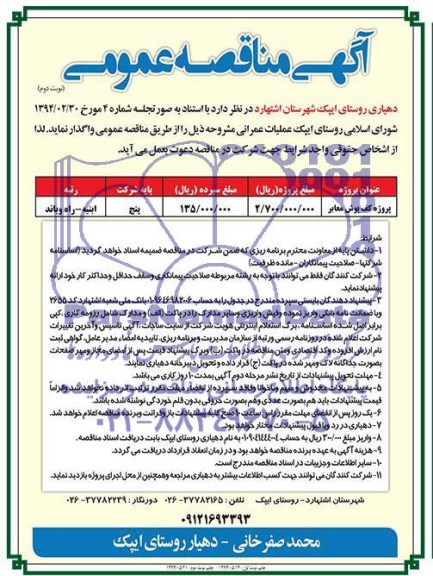 آگهی مناقصه عمومی
(نوبت دوم)
دهیاری روستای ایپک شهرستان اشتهارد در نظر دارد با استناد به صورتجلسه شماره ۴ مورخ ۱۳۹۴/۰۲/۳۰
شورای اسلامی روستای ایپک عملیات عمرانی مشروحه ذیل را از طریق مناقصه عمومی واگذار نماید. لذا
از اشخاص حقوقی واجد شرایط جهت شرکت در مناقصه دعوت بعمل می آید.
عنوان پروژه مبلغ پروژه (ریال) مبلغ سپرده (ریال) پایه شرکت رتبه
پروژه کف پوش معابر ۲/۷۰۰/۰۰۰/۰۰۰ ۱۳۵/۰۰۰/۰۰۰ پنج ابنیه - راه و باند
شرایط:
۱- داشتن پایه از معاونت محترم برنامه ریزی که ضمن شرکت در مناقصه ضمیمه اسناد خواهد گردید (اساسنامه
شرکتها - صلاحیت پیمانکاران - مانده ظرفیت)
۲- شرکت کنندگان فقط می توانند با توجه به رشته مربوطه صلاحیت پیمانکاری وسقف حداقل وحداکثر کار خود ارائه
پیشنهاد نماید.
۳- پیشنهاد دهندگان بایستی سپرده مندرج در جدول را به حساب بانک ملی شعبه اشتهارد کد ۲۶۵۵
ویا ضمانت نامه بانکی واریز نموده وفیش واریزی وسایر مدارک را در پاکت (الف) و مدارک شامل رزومه کاری، کپی
برابر اصل شده اساسنامه، برگ استعلام اینترنتی هویت شرکت از سایت ساجات، آگهی تاسیس و آخرین تغییرات
شرکت اعلام شده در روزنامه رسمی ورتبه از سازمان مدیریت و برنامه ریزی، تاییدیه امضاء مدیر عامل، گواهی ثبت
نام ارزش افزوده وکد اقتصادی ومتن مناقصه در پاکت (ب) وبرگ پیشنهاد قیمت پس از امضای مجاز ومهر صفحات
بصورت جداگانه لاک ومهر شده در پاکت (ج) قرار داده و تحویل دبیرخانه دهیاری نمایند.
۴- مهلت تحویل پیشنهادات از تاریخ نشر مرحله دوم آگهی بمدت ۱۰ روز کاری می باشد.
قیمت پیشنهادات باید هم بصورت عددی وهم بصورت حروفی بدون قلم خوردگی نوشته شده باشد.
۶- یک روز پس از انقضای مهلت مقرر راس ساعت ۱۰ صبح کلیه پیشنهادات بازو قرائت وبرنده مناقصه اعلام خواهد شد.
۷- دهیاری در رد ویا قبول پیشنهادات مختار خواهد بود.
۸- واریز مبلغ ۳۰۰/۰۰۰ ریال به حساب به نام دهیاری روستای ایپک بابت دریافت اسناد مناقصه.
۹- هزینه آگهی به عهده برنده مناقصه خواهد بود و در زمان انعقاد قرارداد دریافت می گردد.
۱۰- سایر اطلاعات وجزییات در اسناد مناقصه مندرج است.
۱۱- شرکت کنندگان می توانند جهت کسب اطلاعات بیشتر به دهیاری مراجعه وهمچنین از محل اجرای پروژه بازدید نماید.
شهرستان اشتهارد - روستای ایپک تلفن: ۳۷۷۸۲۱۶۵-۰۲۶ دورنگار: ۳۷۷۸۲۲۳۹-۰۲۶
۰۹۱۲۱۶۹۳۳۹۳
محمد صفرخانی - دهیار روستای ایپک